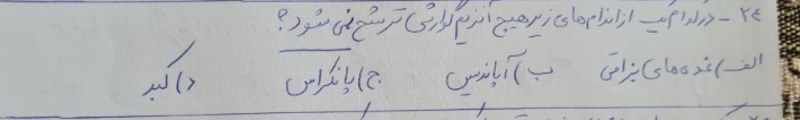 ۲۴ - در کدام یک از اندام‌های زیر هیچ آنزیم گوارشی ترشح نمی‌شود؟
الف) غده‌های بزاقی ب) آپاندیس ج) پانکراس د) کبد